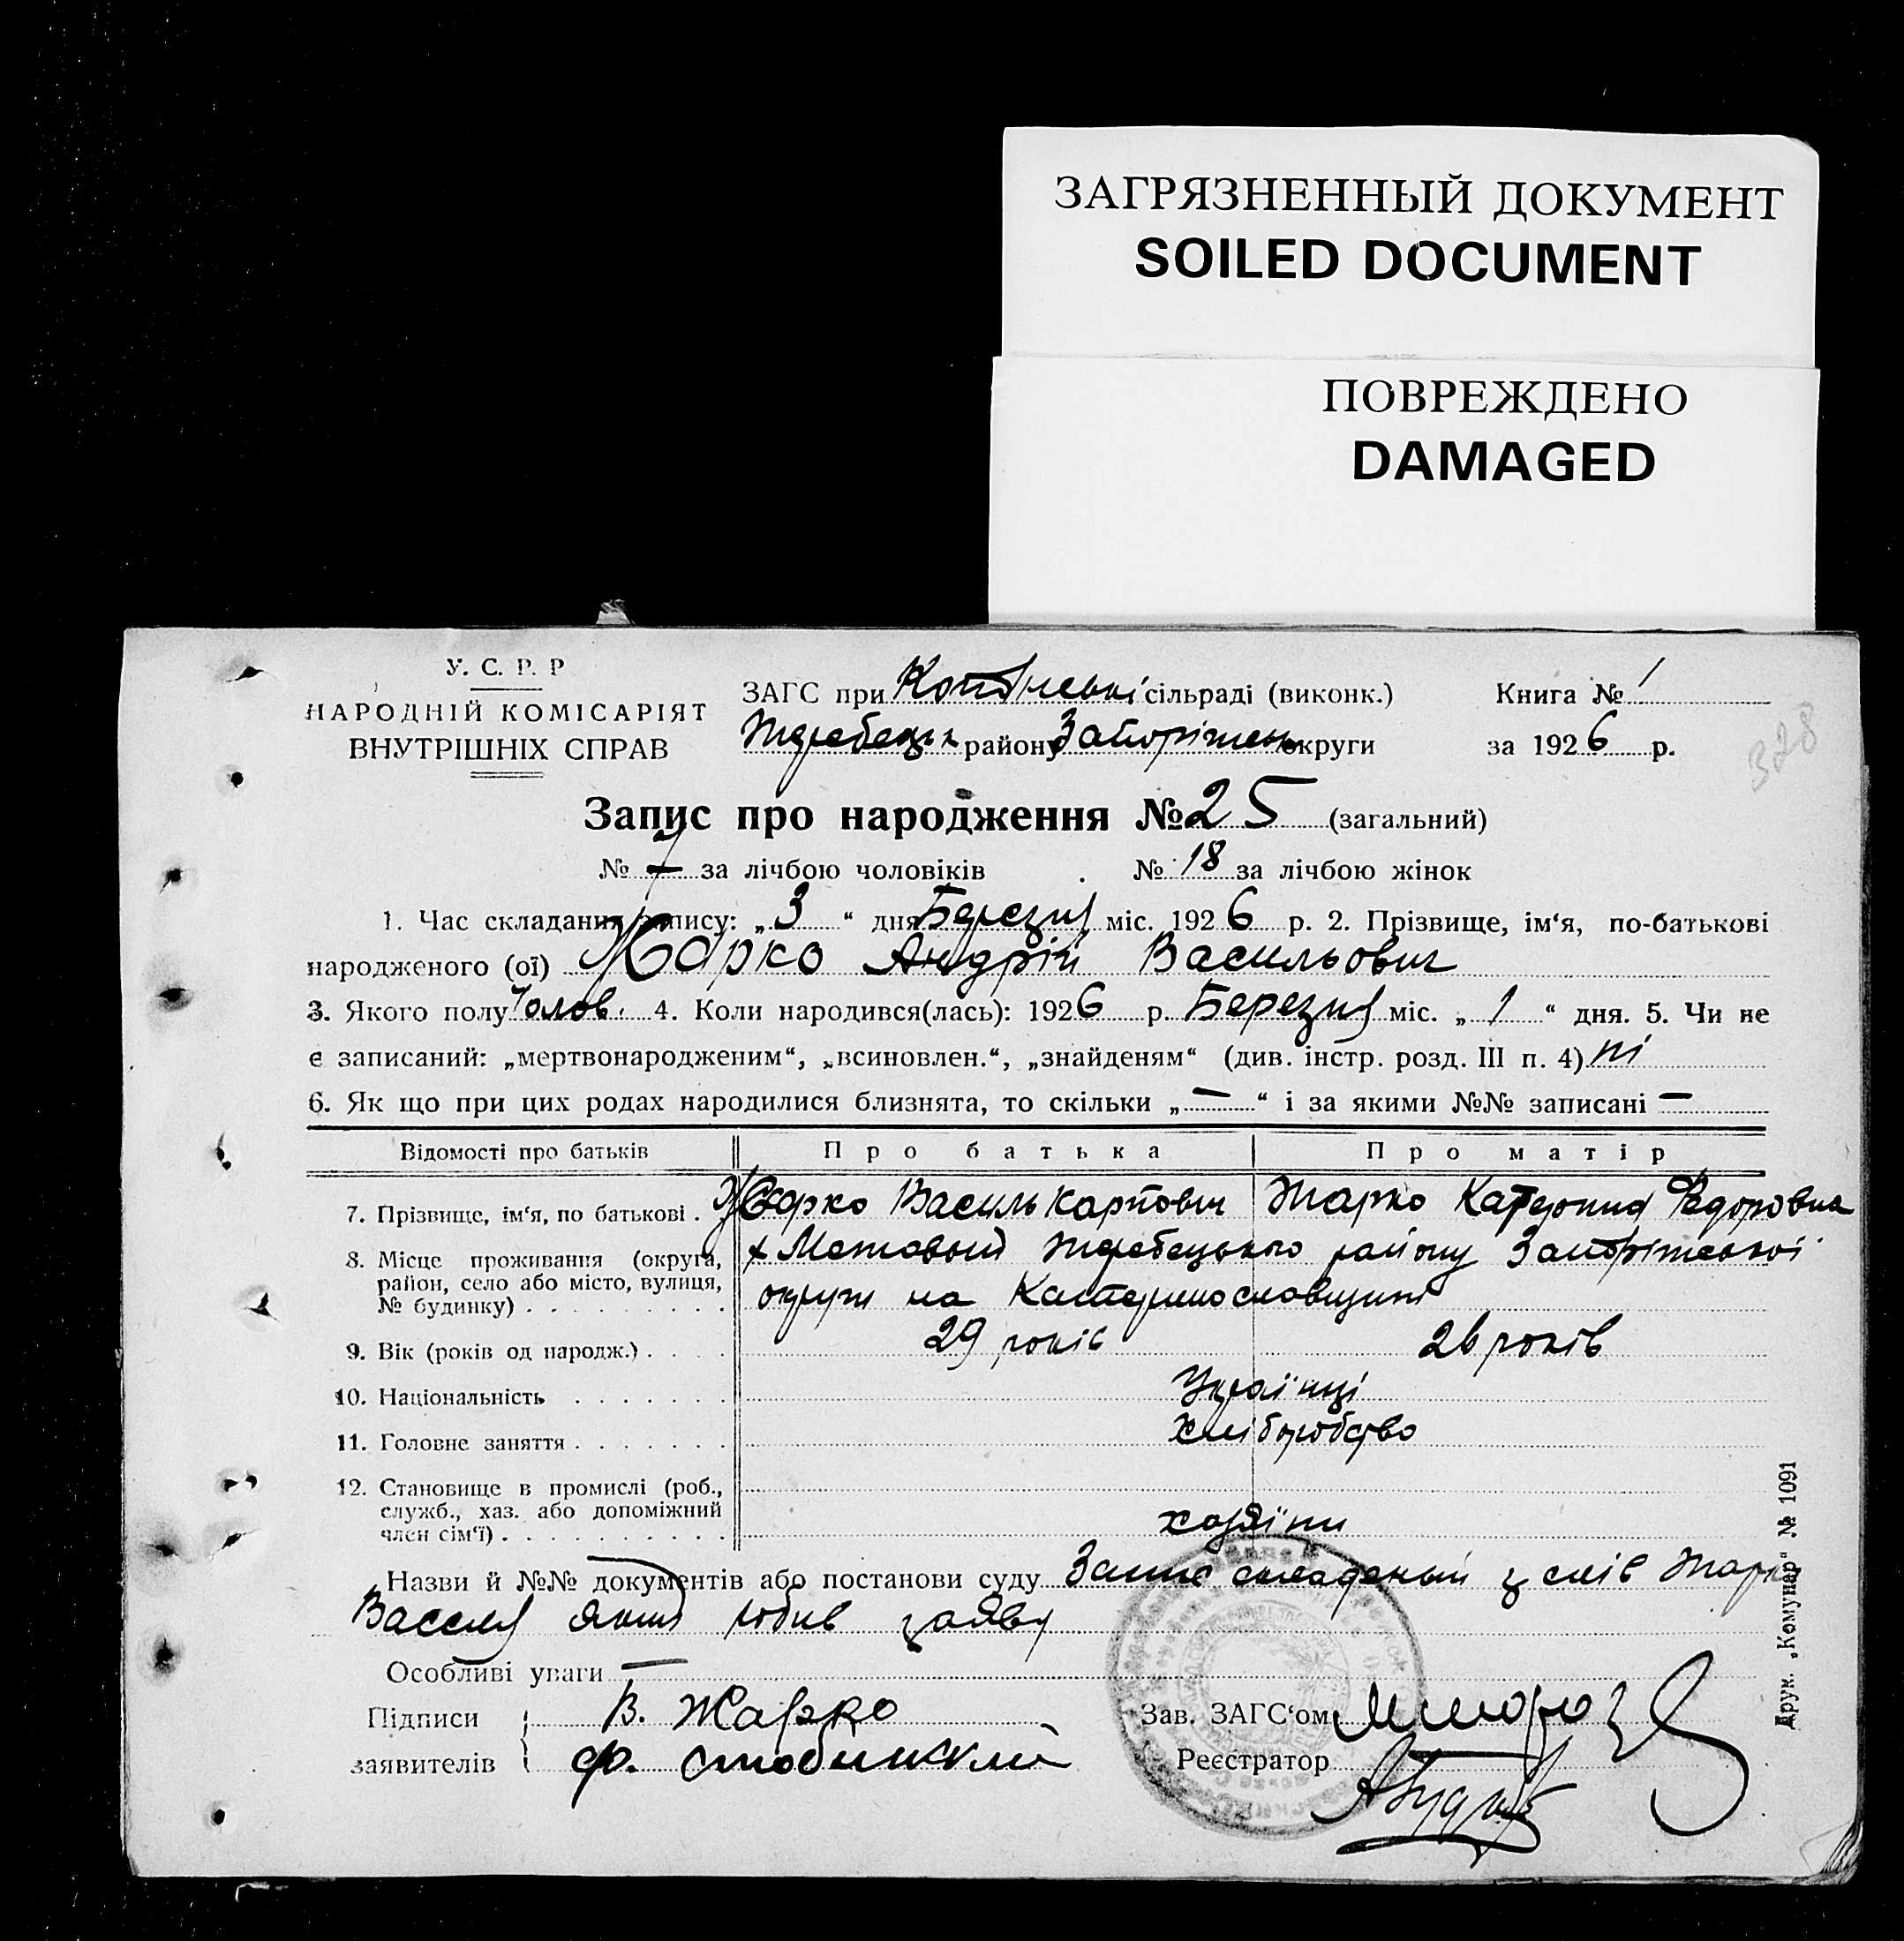 ЗАГРЯЗНЕННЫЙ ДОКУМЕНТ
SOILED DOCUMENT
ПОВРЕЖДЕНО
DAMAGED
У. С. Р. Р
НАРОДНІЙ КОМІСАРІЯТ
ВНУТРІШНІХ СПРАВ
ЗАГС при сільраді (виконк.)
Жеребецьк району Запоріжськ округи
Книга № 1
за 1926 р.
328
Запис про народження № 25 (загальний)
№ 7 за лічбою чоловіків № 18 за лічбою жінок
1. Час складання запису: „3“ дня Березня міс. 1926 р. 2. Прізвище, ім‘я, по-батькові
народженого (ої) Жарко Андрій Васильович
3. Якого полу Чолов. 4. Коли народився(лась): 1926 р. Березня міс. „1“ дня. 5. Чи не
є записаний: „мертвонародженим“, „всиновлен.“, „знайденям“ (див. інстр. розд. III п. 4) ні
6. Як що при цих родах народилися близнята, то скільки „—“ і за якими №№ записані —
Відомості про батьків Про батька Про матір
7. Прізвище, ім‘я, по батькові . Жарко Василь Карпович Жарко Катерина Федоровна
8. Місце проживання (округа, район, село або місто, вулиця, № будинку) х Жеребецького району Запоріжської
округи на Катеринославщині
9. Вік (років од народж.) . . . . 29 років 26 років
10. Національність . . . . . . . Українці
11. Головне заняття . . . . . . . Хліборобство
12. Становище в промислі (роб., служб., хаз. або допоміжний член сім‘ї) . . . . . . . . . . хазяїни
Назви й №№ документів або постанови суду Запис складений з слів Жарко
Василя який робив заяву
Особливі уваги —
Підписи заявителів
В. Жарко
Ф.
Зав. ЗАГС‘ом
Реєстратор
Друк. „Комунар“ № 1091